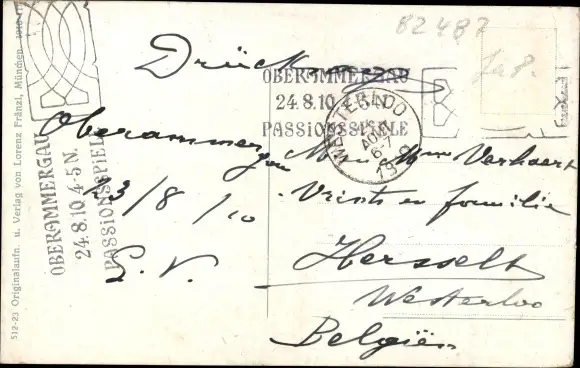 82487
OBERAMMERGAU
24.8.10.4-5N.
PASSIONSSPIELE
OBERAMMERGAU
24.8.10.4-5N.
PASSIONSSPIELE
WESTERLOO
AOUT
6-7
1910
Oberammergau
23/8/10
Mr & Mme Verhaert
Vrints en familie
Hersselt
Westerloo
Belgiën
512-23 Originalaufn. u. Verlag von Lorenz Fränzl, München